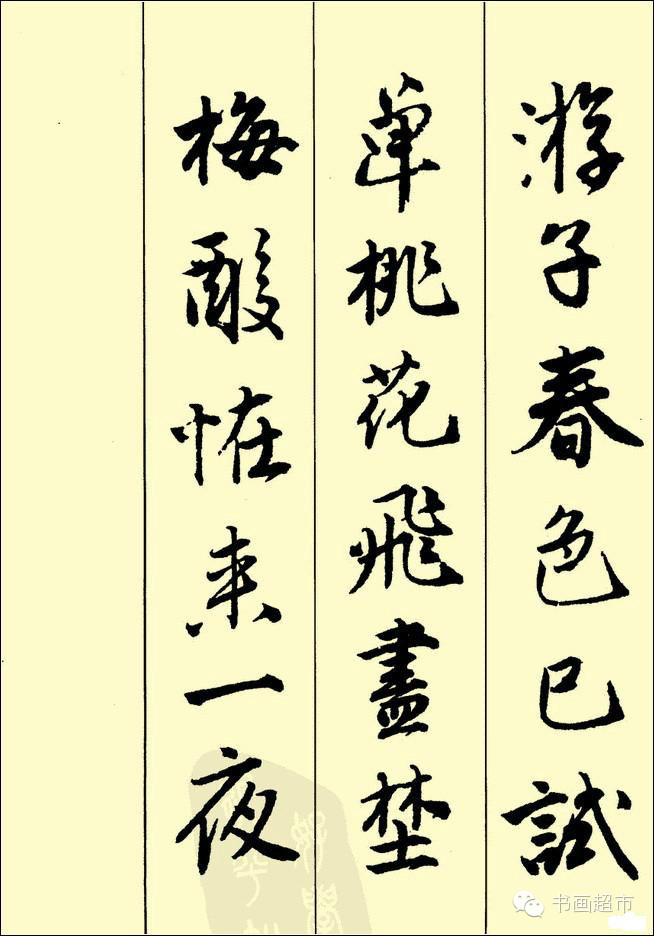 游子春色已試
單桃花飛盡埜
梅酸恠来一夜
书画超市